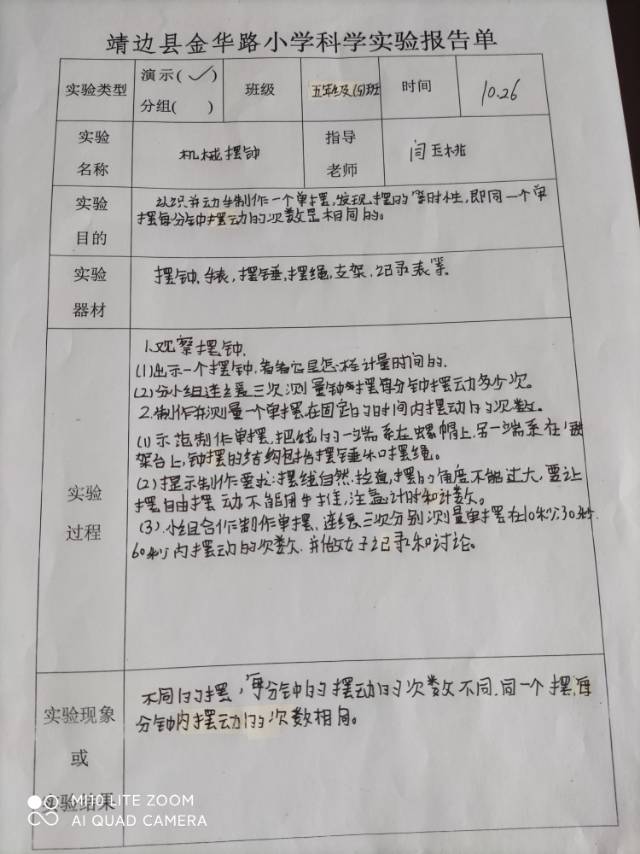 靖边县金华路小学科学实验报告单
实验类型 演示(✓) 分组( ) 班级 五年级(5)班 时间 10.26
实验名称 机械摆钟 指导老师 闫玉桃
实验目的 认识并动手制作一个单摆,发现摆的等时性,即同一个单
摆每分钟摆动的次数是相同的。
实验器材 摆钟、手表,摆锤,摆绳,支架,记录表等.
实验过程
1.观察摆钟.
(1)出示一个摆钟.看看它是怎样计量时间的.
(2)分小组连续三次测量钟摆每分钟摆动多少次。
2.制作并测量一个单摆在固定的时间内摆动的次数。
(1)示范制作单摆,把线的一端系在螺帽上,另一端系在
架台上,钟摆的结构包括摆锤和摆绳。
(2)提示制作要求:摆线自然拉直,摆的角度不能过大,要让
摆自由摆动不能用手推,注意计时和计数。
(3).小组合作制作单摆.连续三次分别测量单摆在10秒、30秒、
60秒内摆动的次数.并做好记录和讨论。
实验现象或实验结果 不同的摆,每分钟的摆动的次数不同.同一个摆,每
分钟内摆动的次数相同。
MI 10 LITE ZOOM
AI QUAD CAMERA